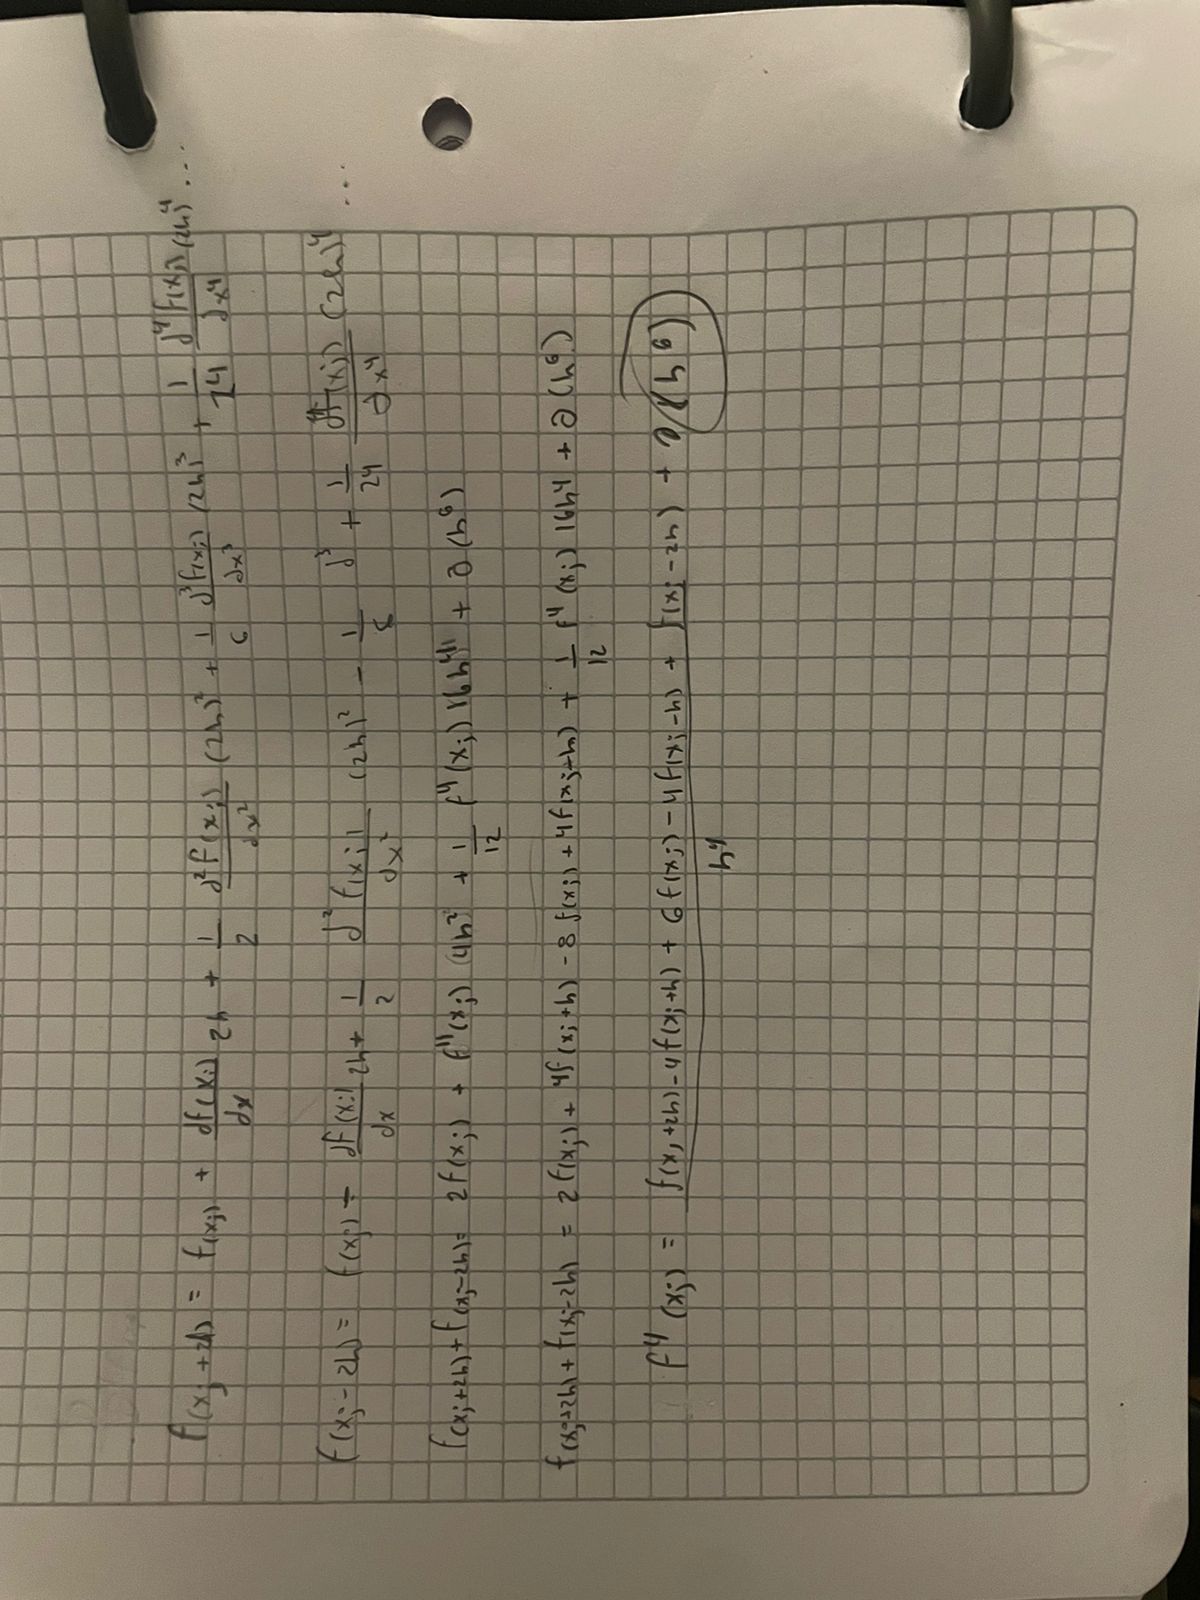 f(xj + 2h) = f(xj) + df(xj)/dx 2h + 1/2 d²f(xj)/dx² (2h)² + 1/6 d³f(xj)/dx³ (2h)³ + 1/24 d⁴f(xj)/dx⁴ (2h)⁴ ...
f(xj - 2h) = f(xj) - df(xj)/dx 2h + 1/2 d²f(xj)/dx² (2h)² - 1/6 d³ + 1/24 d⁴f(xj)/dx⁴ (2h)⁴ ...
f(xj+2h) + f(xj-2h) = 2f(xj) + f''(xj) (4h²) + 1/12 f⁴(xj) 16h⁴ + O(h⁶)
f(xj+2h) + f(xj-2h) = 2f(xj) + 4f(xj+h) - 8f(xj) + 4f(xj+h) + 1/12 f⁴(xj) 16h⁴ + O(h⁶)
f⁴(xj) = f(xj+2h) - 4f(xj+h) + 6f(xj) - 4f(xj-h) + f(xj-2h) / h⁴ + O(h⁶)